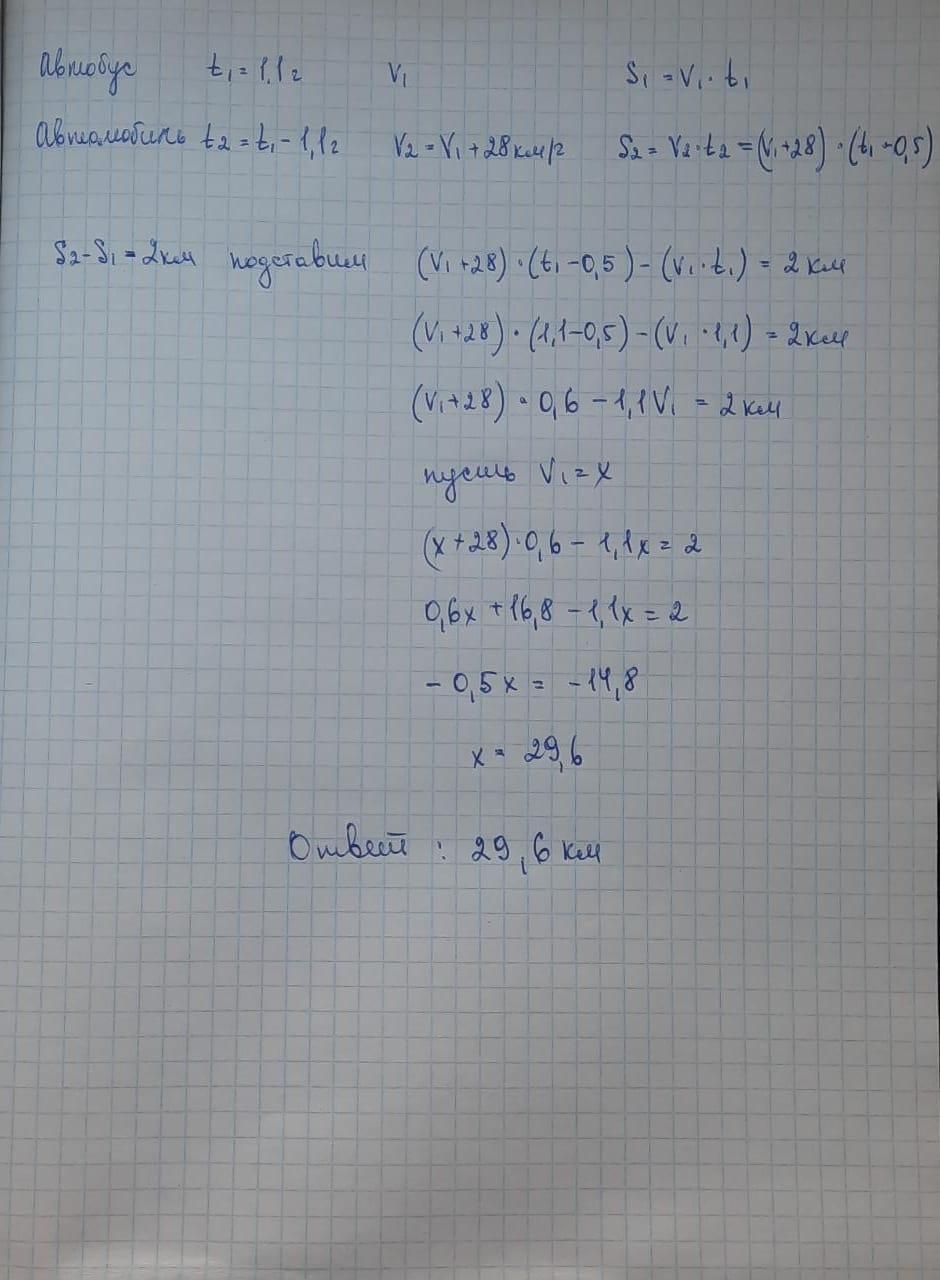 Автобус t₁ = 1,1г V₁ S₁ = V₁ · t₁
Автомобиль t₂ = t₁ - 1,1г V₂ = V₁ + 28км/г S₂ = V₂ · t₂ = (V₁+28) · (t₁ - 0,5)
S₂ - S₁ = 2км подставим (V₁+28) · (t₁ - 0,5) - (V₁ · t₁) = 2 км
(V₁+28) · (1,1-0,5) - (V₁ · 1,1) = 2км
(V₁+28) · 0,6 - 1,1V₁ = 2 км
пусть V₁ = x
(x+28) · 0,6 - 1,1x = 2
0,6x + 16,8 - 1,1x = 2
- 0,5x = - 14,8
x = 29,6
Ответ : 29,6 км